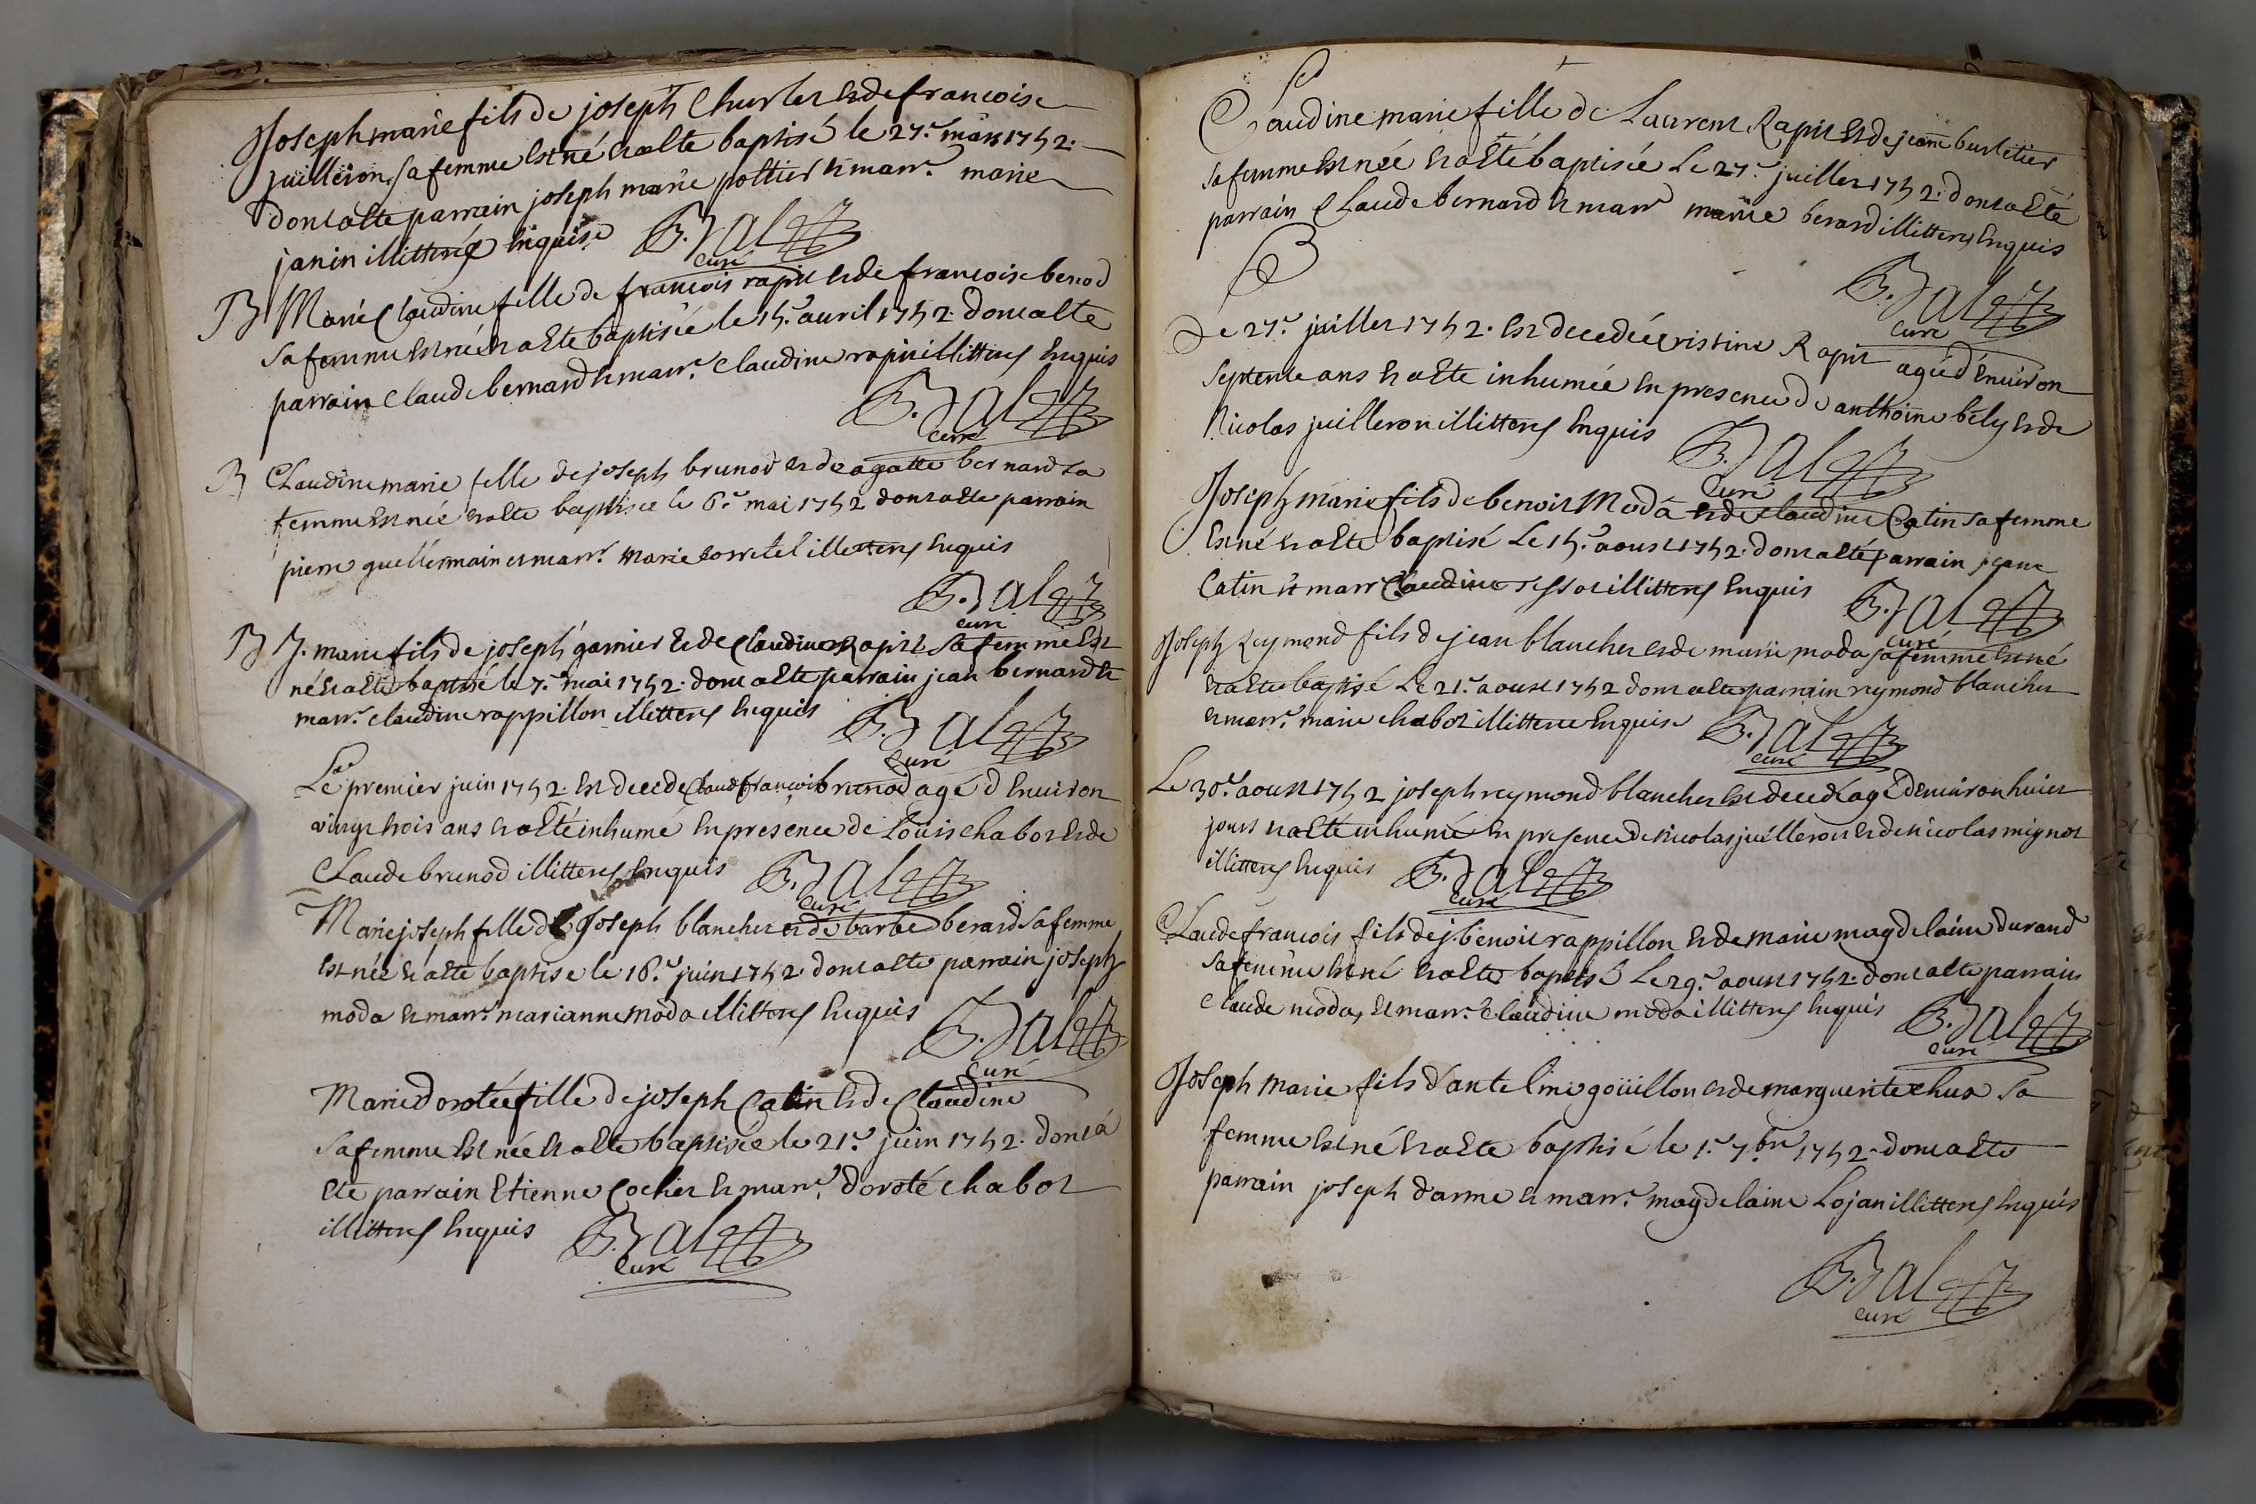 Joseph marie fils de joseph Churlet et de francoise
juilleron, sa femme est né et a esté baptisé le 27.e mars 1752.
dont a esté parrain joseph marie pottier et marr.e marie
janin illitterés enquise B. Jal
curé
B Marie Claudine fille de francois rapit et de francoise benod
sa femme est née et a esté baptisée le 15.e auril 1752. dont a esté
parrain Claude bernard et marr.e Claudine rapit illitterés enquis
B. Jal
curé
B Claudine marie fille de joseph brunod et de agatte bernard sa
femme est née et a esté baptisée le 6.e mai 1752 dont a esté parrain
pierre guellermain et marr.e marie illitterés enquis
B. Jal
curé
B J. marie fils de joseph garnier et de Claudine Rapit sa femme est
né et a esté baptisé le 7.e mai 1752. dont a esté parrain jean bernard et
marr.e claudine rappillon illitterés enquis B. Jal
curé
Le premier juin 1752. est decedé Claude francois brunod agé d'enuiron
vingt trois ans et a esté inhumé en presence de Louis chabot et de
Claude brunod illitterés enquis B. Jal
curé
Marie joseph fille de Joseph blanchet et de barbe berard sa femme
est née et a esté baptisée le 18.e juin 1752. dont a esté parrain joseph
moda et marr.e marianne moda illitterés enquis B. Jal
curé
Marie dorotée fille de joseph Catin et de Claudine
sa femme est née et a esté baptisée le 21.e juin 1752. dont a
esté parrain Etienne Cochet et marr.e doroté chabot
illitterés enquis B. Jal
curé
Claudine marie fille de Laurent Rapit et de jeanne burletier
sa femme est née et a esté baptisée Le 27.e juillet 1752. dont a esté
parrain Claude bernard et marr.e marie berard illitterés enquis
B. Jal
curé
Le 27.e juillet 1752. est decedée cristine Rapit agée d'enuiron
septente ans et a esté inhumée en presence de anthoine bély et de
Nicolas juilleron illitterés enquis B. Jal
curé
Joseph marie fils de benoit Moda et de claudine Catin sa femme
est né et a esté baptisé Le 15.e aoust 1752. dont a esté parrain jeane
Catin et marr Claudine illitterés enquis B. Jal
curé
Joseph Reymond fils de jean blanchet et de marie moda sa femme est né
et a esté baptisé Le 21.e aoust 1752 dont a esté parrain reymond blanchet
et marr.e marie chabot illitterée enquise B. Jal
curé
Le 30.e aoust 1752 joseph reymond blanchet est decedé agé d'enuiron huict
jours et a esté inhumé en presence de nicolas juilleron et de nicolas mignot
illitterés enquis B. Jal
curé
Claude francois fils de j. benoit rappillon et de marie magdelaine durand
sa femme est né et a esté baptisé Le 29.e aoust 1752. dont a esté parrain
Claude moda, et marr.e Claudine moda illitterés enquis B. Jal
curé
Joseph marie fils d'antelme goüillon et de marguerite chua sa
femme est né et a esté baptisé le 1.e 7.bre 1752. dont a esté
parrain joseph darme et marr.e magdelaine Lojan illitterés enquis
B. Jal
curé